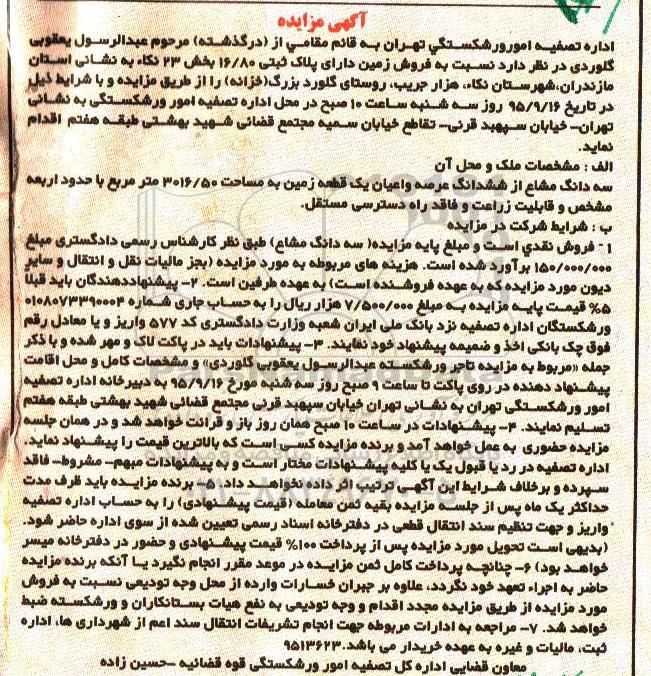 آگهی مزایده
اداره تصفیه امورورشکستگی تهران به قائم مقامی از (درگذشته) مرحوم عبدالرسول یعقوبی
گلوردی در نظر دارد نسبت به فروش زمین دارای پلاک ثبتی ۱۶/۸۰ بخش ۲۳ نکاء به نشانی استان
مازندران،شهرستان نکاء، هزار جریب، روستای گلورد بزرگ(خزانه) را از طریق مزایده و با شرایط ذیل
در تاریخ ۹۵/۹/۱۶ روز سه شنبه ساعت ۱۰ صبح در محل اداره تصفیه امور ورشکستگی به نشانی
تهران- خیابان سپهبد قرنی- تقاطع خیابان سمیه مجتمع قضائی شهید بهشتی طبقه هفتم اقدام
نماید.
الف : مشخصات ملک و محل آن
سه دانگ مشاع از ششدانگ عرصه واعیان یک قطعه زمین به مساحت ۳۰۱۶/۵۰ متر مربع با حدود اربعه
مشخص و قابلیت زراعت و فاقد راه دسترسی مستقل.
ب : شرایط شرکت در مزایده
۱- فروش نقدی است و مبلغ پایه مزایده( سه دانگ مشاع) طبق نظر کارشناس رسمی دادگستری مبلغ
۱۵۰/۰۰۰/۰۰۰ برآورد شده است. هزینه های مربوطه به مورد مزایده (بجز مالیات نقل و انتقال و سایر
دیون مورد مزایده که به عهده فروشنده است) به عهده طرفین است. ۲- پیشنهاددهندگان باید قبلاً
۵% قیمت پایه مزایده به مبلغ ۷/۵۰۰/۰۰۰ هزار ریال را به حساب جاری شماره ۰۱۰۸۰۷۳۳۹۰۰۰۴
ورشکستگان اداره تصفیه نزد بانک ملی ایران شعبه وزارت دادگستری کد ۵۷۷ واریز و یا معادل رقم
فوق چک بانکی اخذ و ضمیمه پیشنهاد خود نمایند. ۳- پیشنهادات باید در پاکت لاک و مهر شده و با ذکر
جمله «مربوط به مزایده تاجر ورشکسته عبدالرسول یعقوبی گلوردی» و مشخصات کامل و محل اقامت
پیشنهاد دهنده در روی پاکت تا ساعت ۹ صبح روز سه شنبه مورخ ۹۵/۹/۱۶ به دبیرخانه اداره تصفیه
امور ورشکستگی تهران به نشانی تهران خیابان سپهبد قرنی مجتمع قضائی شهید بهشتی طبقه هفتم
تسلیم نمایند. ۴- پیشنهادات در ساعت ۱۰ صبح همان روز باز و قرائت خواهد شد و در همان جلسه
مزایده حضوری به عمل خواهد آمد و برنده مزایده کسی است که بالاترین قیمت را پیشنهاد نماید.
اداره تصفیه در رد یا قبول یک یا کلیه پیشنهادات مختار است و به پیشنهادات مبهم- مشروط- فاقد
سپرده و برخلاف شرایط این آگهی ترتیب اثر داده نخواهد داد. ۵- برنده مزایده باید ظرف مدت
حداکثر یک ماه پس از جلسه مزایده بقیه ثمن معامله (قیمت پیشنهادی) را به حساب اداره تصفیه
واریز و جهت تنظیم سند انتقال قطعی در دفترخانه اسناد رسمی تعیین شده از سوی اداره حاضر شود.
(بدیهی است تحویل مورد مزایده پس از پرداخت ۱۰۰% قیمت پیشنهادی و حضور در دفترخانه میسر
خواهد بود) ۶- چنانچه پرداخت کامل ثمن مزایده در موعد مقرر انجام نگیرد یا آنکه برنده مزایده
حاضر به اجراء تعهد خود نگردد، علاوه بر جبران خسارات وارده از محل وجه تودیعی نسبت به فروش
مورد مزایده از طریق مزایده مجدد اقدام و وجه تودیعی به نفع هیات بستانکاران و ورشکسته ضبط
خواهد شد. ۷- مراجعه به ادارات مربوطه جهت انجام تشریفات انتقال سند اعم از شهرداری ها، اداره
ثبت، مالیات و غیره به عهده خریدار می باشد.۹۵۱۳۶۲۳
معاون قضایی اداره کل تصفیه امور ورشکستگی قوه قضائیه -حسین زاده